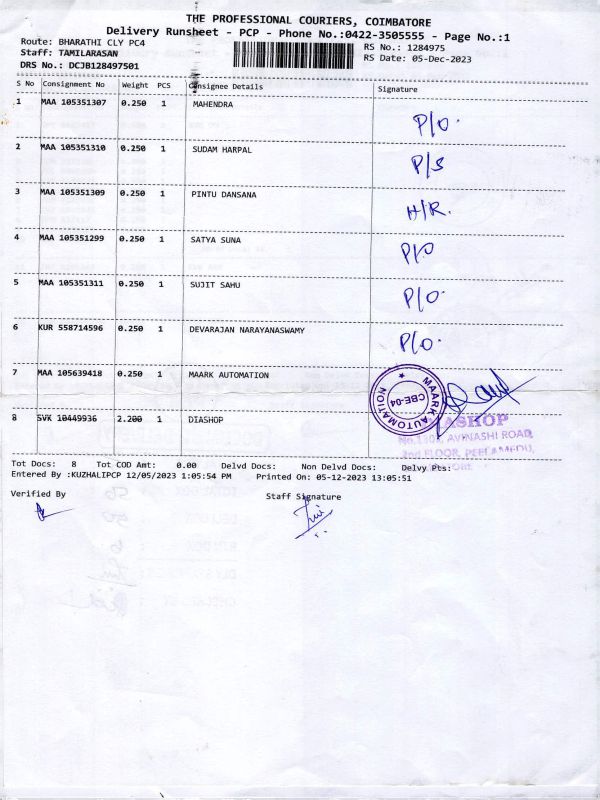 THE PROFESSIONAL COURIERS, COIMBATORE
Delivery Runsheet - PCP - Phone No.:0422-3505555 - Page No.:1
Route: BHARATHI CLY PC4
RS No.: 1284975
Staff: TAMILARASAN
RS Date: 05-Dec-2023
DRS No.: DCJB128497501
S No Consignment No Weight PCS Consignee Details Signature
1 MAA 105351307 0.250 1 MAHENDRA P/O.
2 MAA 105351310 0.250 1 SUDAM HARPAL P/S
3 MAA 105351309 0.250 1 PINTU DANSANA H/R.
4 MAA 105351299 0.250 1 SATYA SUNA P/O
5 MAA 105351311 0.250 1 SUJIT SAHU P/O.
6 KUR 558714596 0.250 1 DEVARAJAN NARAYANASWAMY P/O.
7 MAA 105639418 0.250 1 MAARK AUTOMATION
MAARK AUTOMATION
CBE-04
8 SVK 10449936 2.200 1 DIASHOP
DIASHOP
AVINASHI ROAD,
2nd FLOOR, PEELAMEDU,
Tot Docs: 8 Tot COD Amt: 0.00 Delvd Docs: Non Delvd Docs: Delvy Pts:
Entered By :KUZHALIPCP 12/05/2023 1:05:54 PM Printed On: 05-12-2023 13:05:51
Verified By Staff Signature